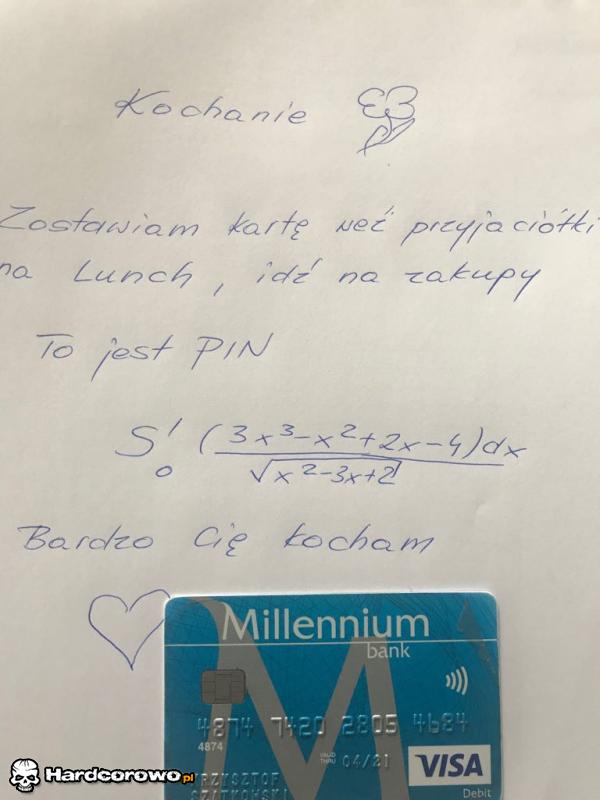 Kochanie
Zostawiam kartę weź przyjaciółki
na Lunch, idź na zakupy
To jest PIN
S¹₀ (3x³-x²+2x-4)dx
√x²-3x+2
Bardzo Cię kocham
Millennium
bank
4874 7420 2805 4684
4874
VALID THRU 04/21
VISA
Debit
KRZYSZTOF
Hardcorowo.pl